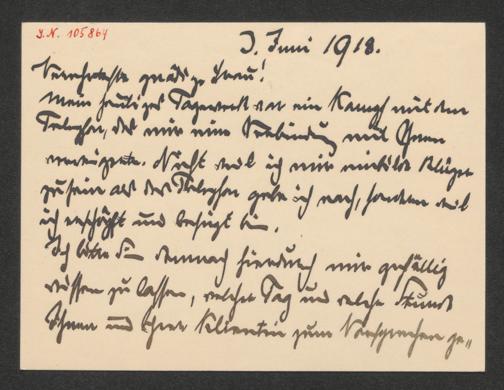 J.N. 105864
3. Juni 1918.
Verehrteste gnädige Frau!
Mein heutiges Tagewerk war ein Kampf mit dem
Telephon, das mir eine Verbindung mit Ihnen
verweigerte. Nicht weil ich mir einbilde klüger
zu sein als das Telephon gebe ich nach, sondern weil
ich erschöpft und besiegt bin.
Ich bitte Sie demnach hierdurch mir gefällig
wissen zu lassen, welcher Tag und welche Stunde
Ihnen und Ihrer Klientin zum Vorsprechen ge-